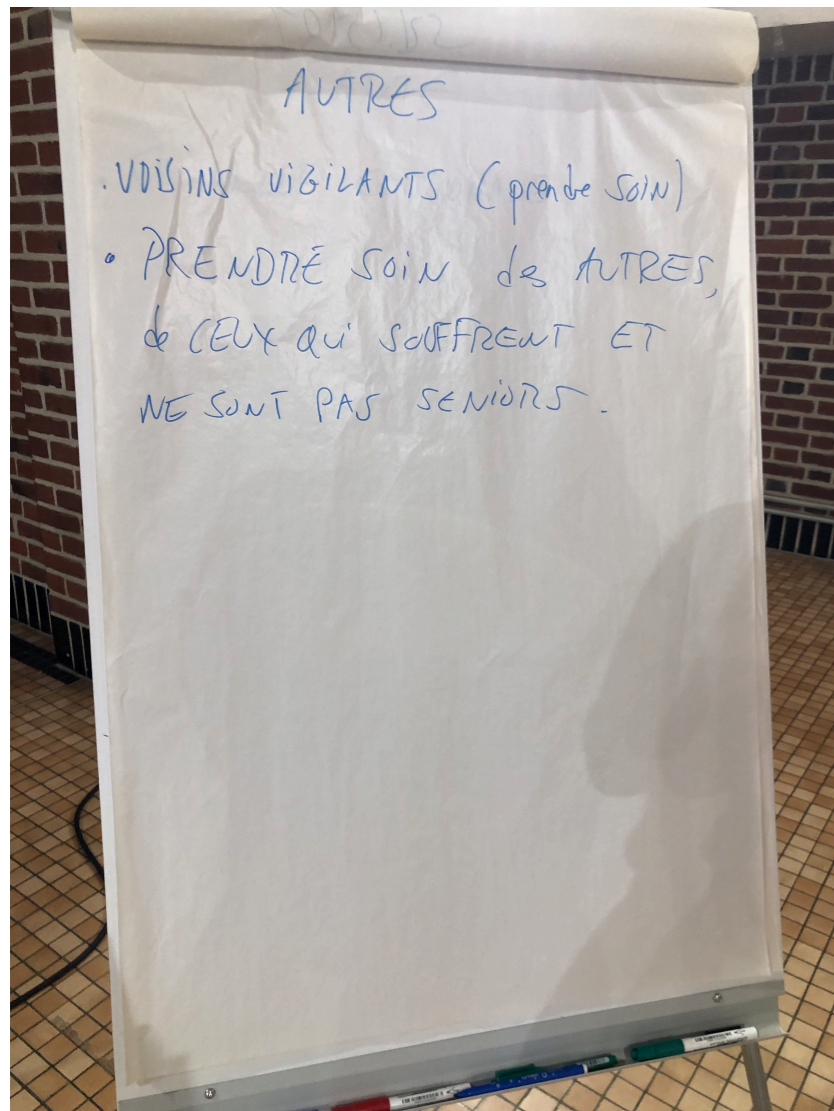 AUTRES
. VOISINS ViGiLANTS (prendre SOiN)
• PRENDRE SOiN des AUTRES,
de CEUX QUi SOUFFRENT ET
NE SONT PAS SENiORS.